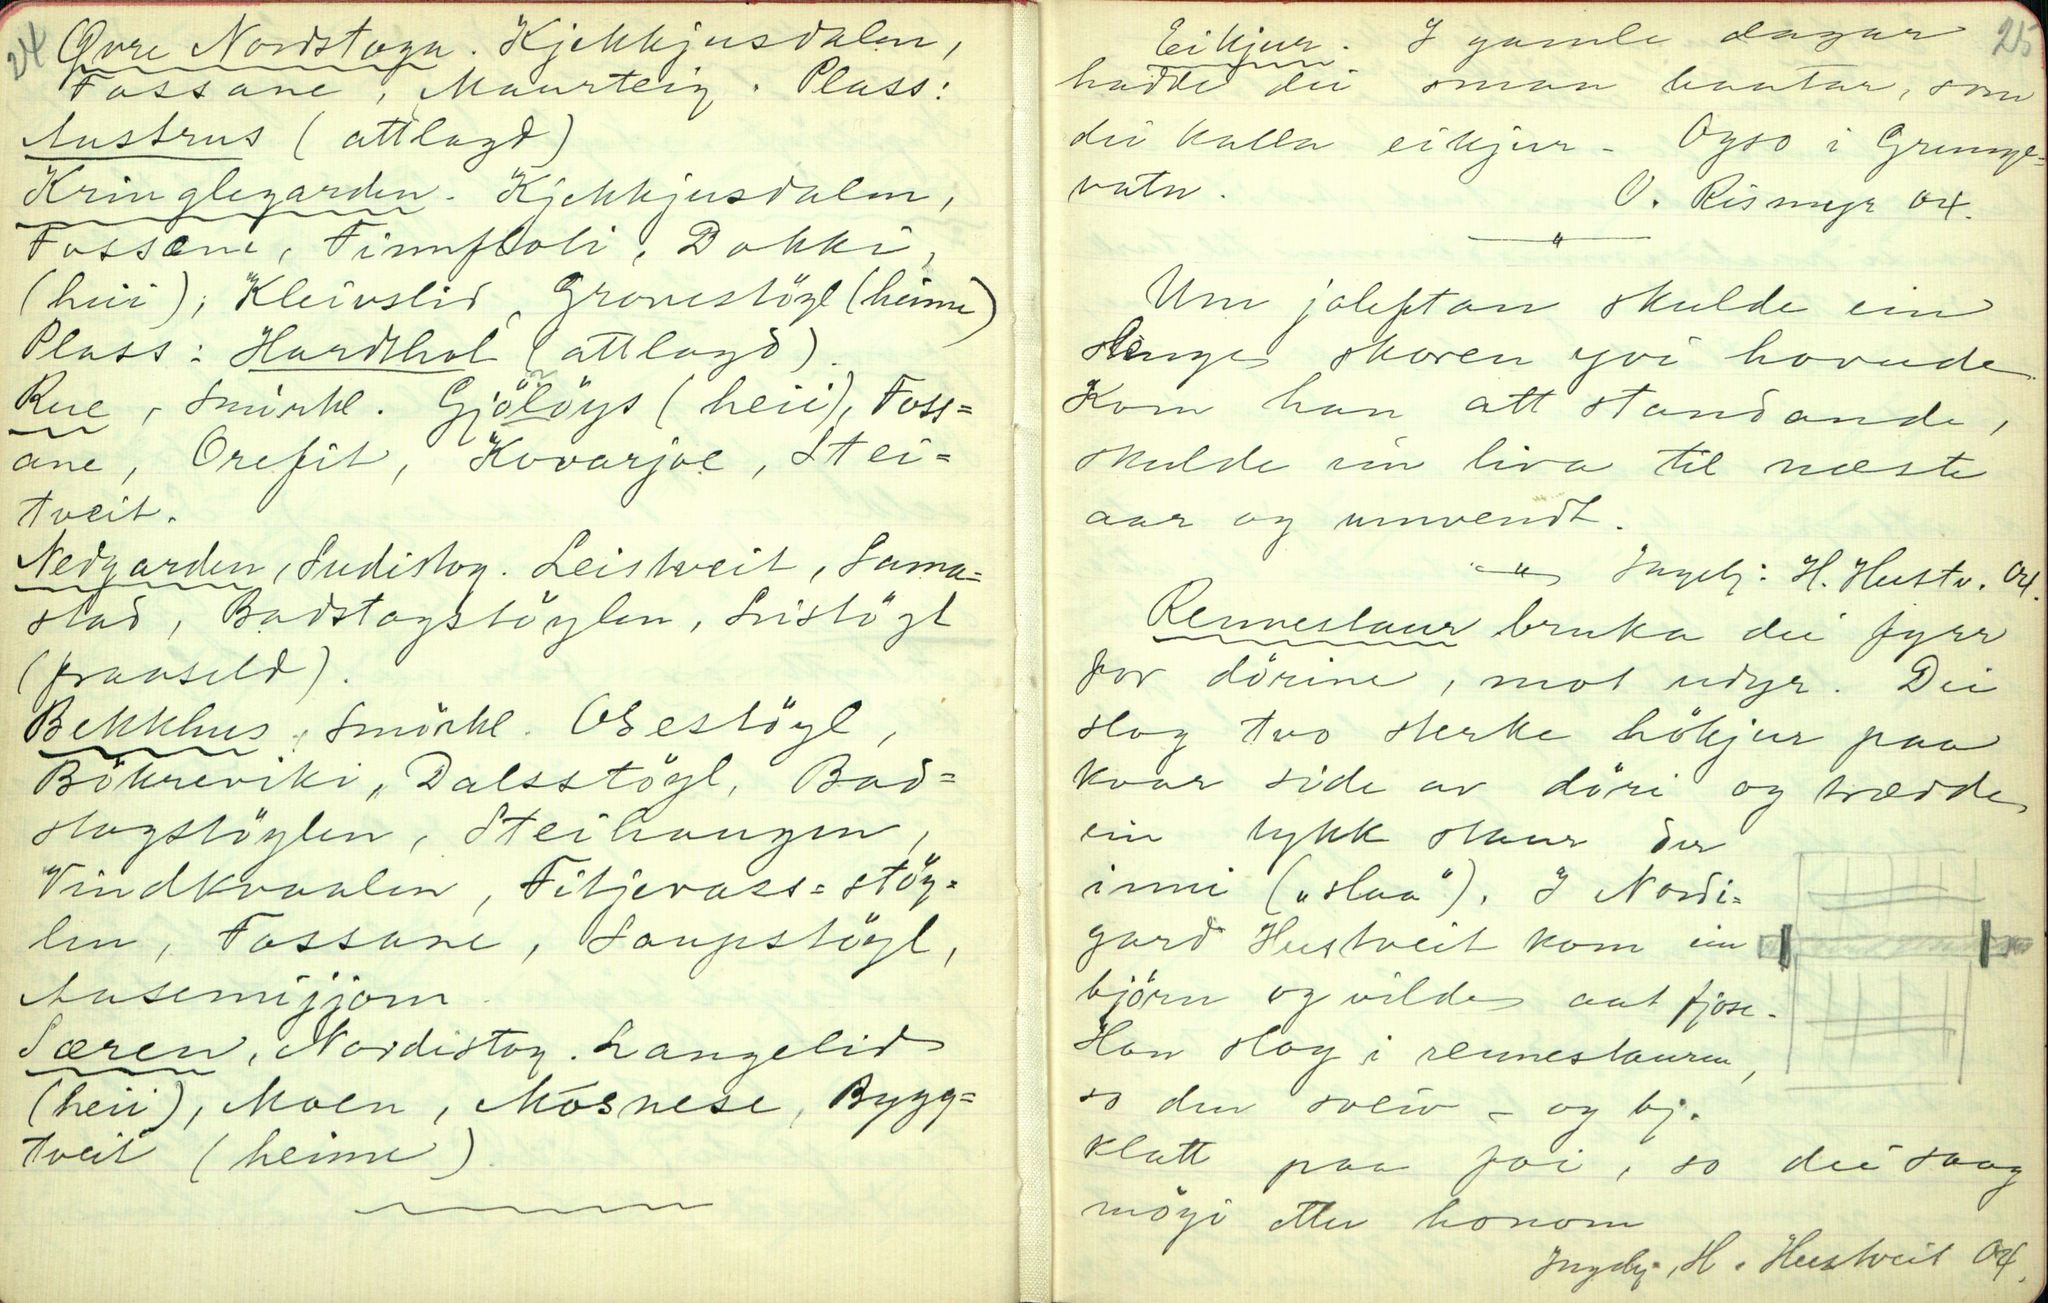 24
Øvre Nordstoga. Kjekkjusdalen,
Fossane, Maurteig. Plass:
Austrus (attlagd)
Kringlegarden. Kjekkjusdalen,
Fossane, Finnfloti, Dokki,
(heii), Kleivslid, Grovestöyl (heime)
Plass: Hardshol (attlagd).
Rue, Smörkl. Gjölöys (heii), Foss=
ane, Orefit, Kovarjoe, Stei=
tveit.
Nedgarden, Sudistog. Leistveit, Sama=
stad, Badstogstöylen, Listöyl
(fraaseld).
Bekkhus, Smörkl. Osestöyl,
Bökreviki, Dalsstöyl, Bad=
stogstöylen, Steihaugen,
Vindkvaalen, Fitjevass=stöy=
len, Fossane, Loupstöyl,
Aasemijjom.
Særen, Nordistog. Langelid
(heii), Moen, Mosnese, Bygg=
tveit (heime).
25
Eikjur. I gamle dagar
hadde dei smaa baatar, som
dei kalla eikjur - Ogso i Grunge=
vatn. O. Rismyr 04.
Um joleftan skulde ein
slengje skoren yvi hovude.
Kom han att standande,
skulde ein liva til næste
aar og umvendt.
Ingebj: H. Hustv. 04.
Rennestaur bruka dei fyrr
for dörine, mot udyr. Dei
slog two sterke hökjur paa
kvar side av döri og trædde
ein tykk staur der
inni („slaa"). I Nordi=
gard Hustveit kom ein
björn og vilde aat fjöse.
Han slog i rennestauren,
so den sveiv - og bj.
klatt paa foi, so dei saag
möyi etter honom
Ingebj. H. Hustveit 04.